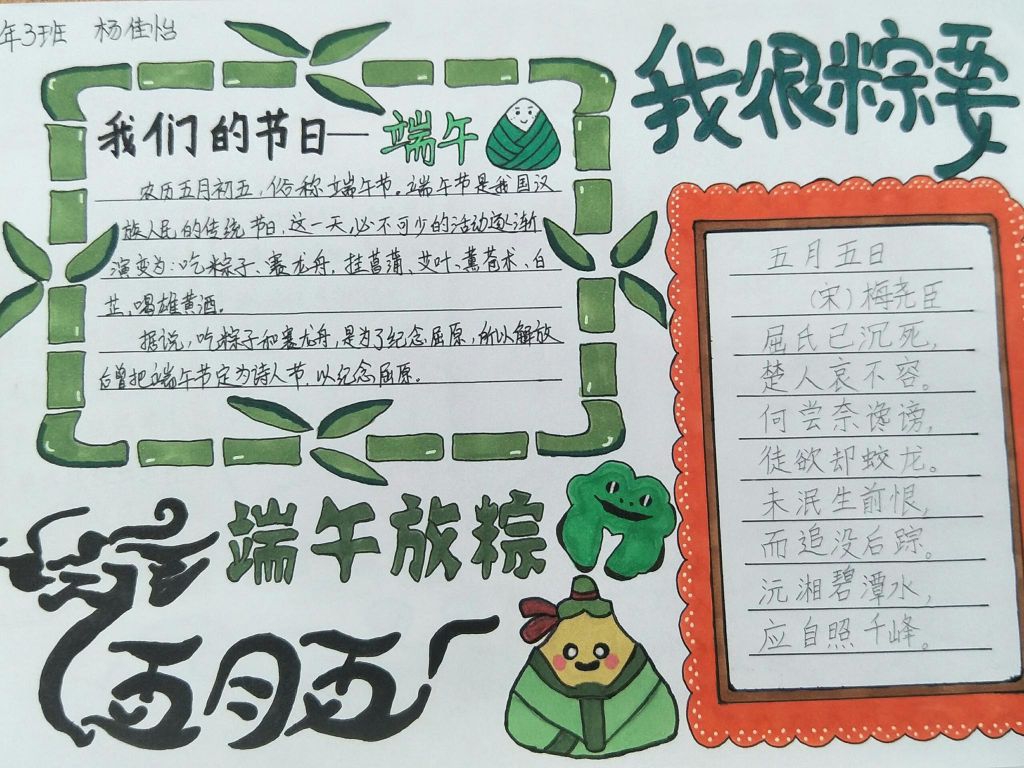 年3班 杨佳怡
我们的节日—端午
农历五月初五，俗称端午节。端午节是我国汉
族人民的传统节日，这一天，必不可少的活动逐渐
演变为：吃粽子、赛龙舟，挂菖蒲、艾叶、薰苍术、白
芷，喝雄黄酒。
据说，吃粽子和赛龙舟，是为了纪念屈原，所以解放
后曾把端午节定为诗人节，以纪念屈原。
端午放粽
五月五
我很粽要
五月五日
（宋）梅尧臣
屈氏已沉死，
楚人哀不容。
何尝奈谗谤，
徒欲却蛟龙。
未泯生前恨，
而追没后踪。
沅湘碧潭水，
应自照千峰。